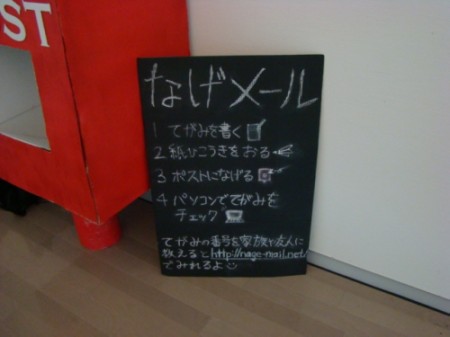 ST
なげメール
1 てがみを書く
2 紙ひこうきをおる
3 ポストになげる
4 パソコンでてがみを
チェック
てがみの番号を家族や友人に
教えると http://nage-mail.net/
でみれるよ